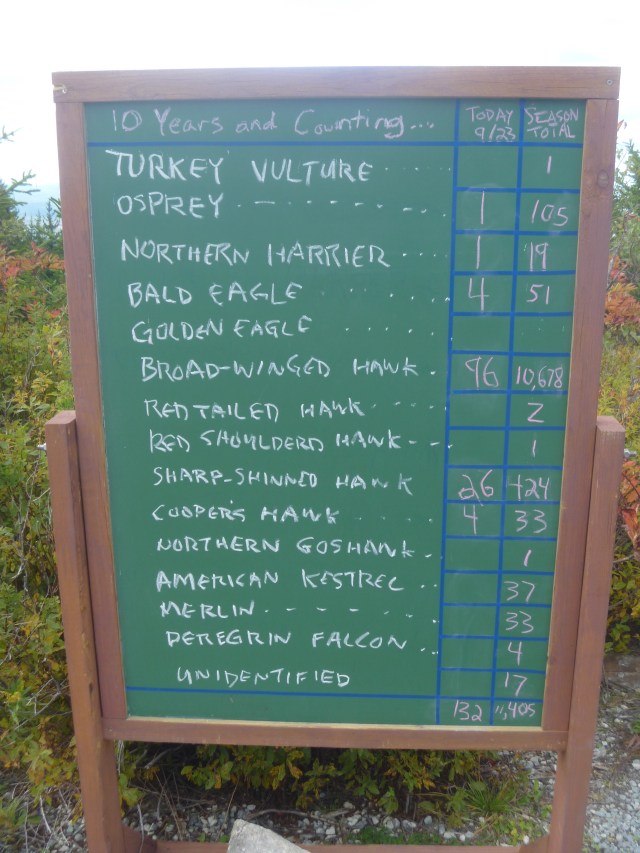 10 Years and Counting... TODAY 9/23 SEASON TOTAL
TURKEY VULTURE ..... 1
OSPREY . - - - - - - 1 105
NORTHERN HARRIER .... 1 19
BALD EAGLE ...... 4 51
GOLDEN EAGLE .....
BROAD-WINGED HAWK . 96 10,678
RED TAILED HAWK .... 2
RED SHOULDERD HAWK --- 1
SHARP-SHINNED HAWK 26 424
COOPERS HAWK ..... 4 33
NORTHERN GOSHAWK . 1
AMERICAN KESTREL .. 37
MERLIN. - - - - - 33
PEREGRIN FALCON .. 4
UNIDENTIFIED 17
132 11,405